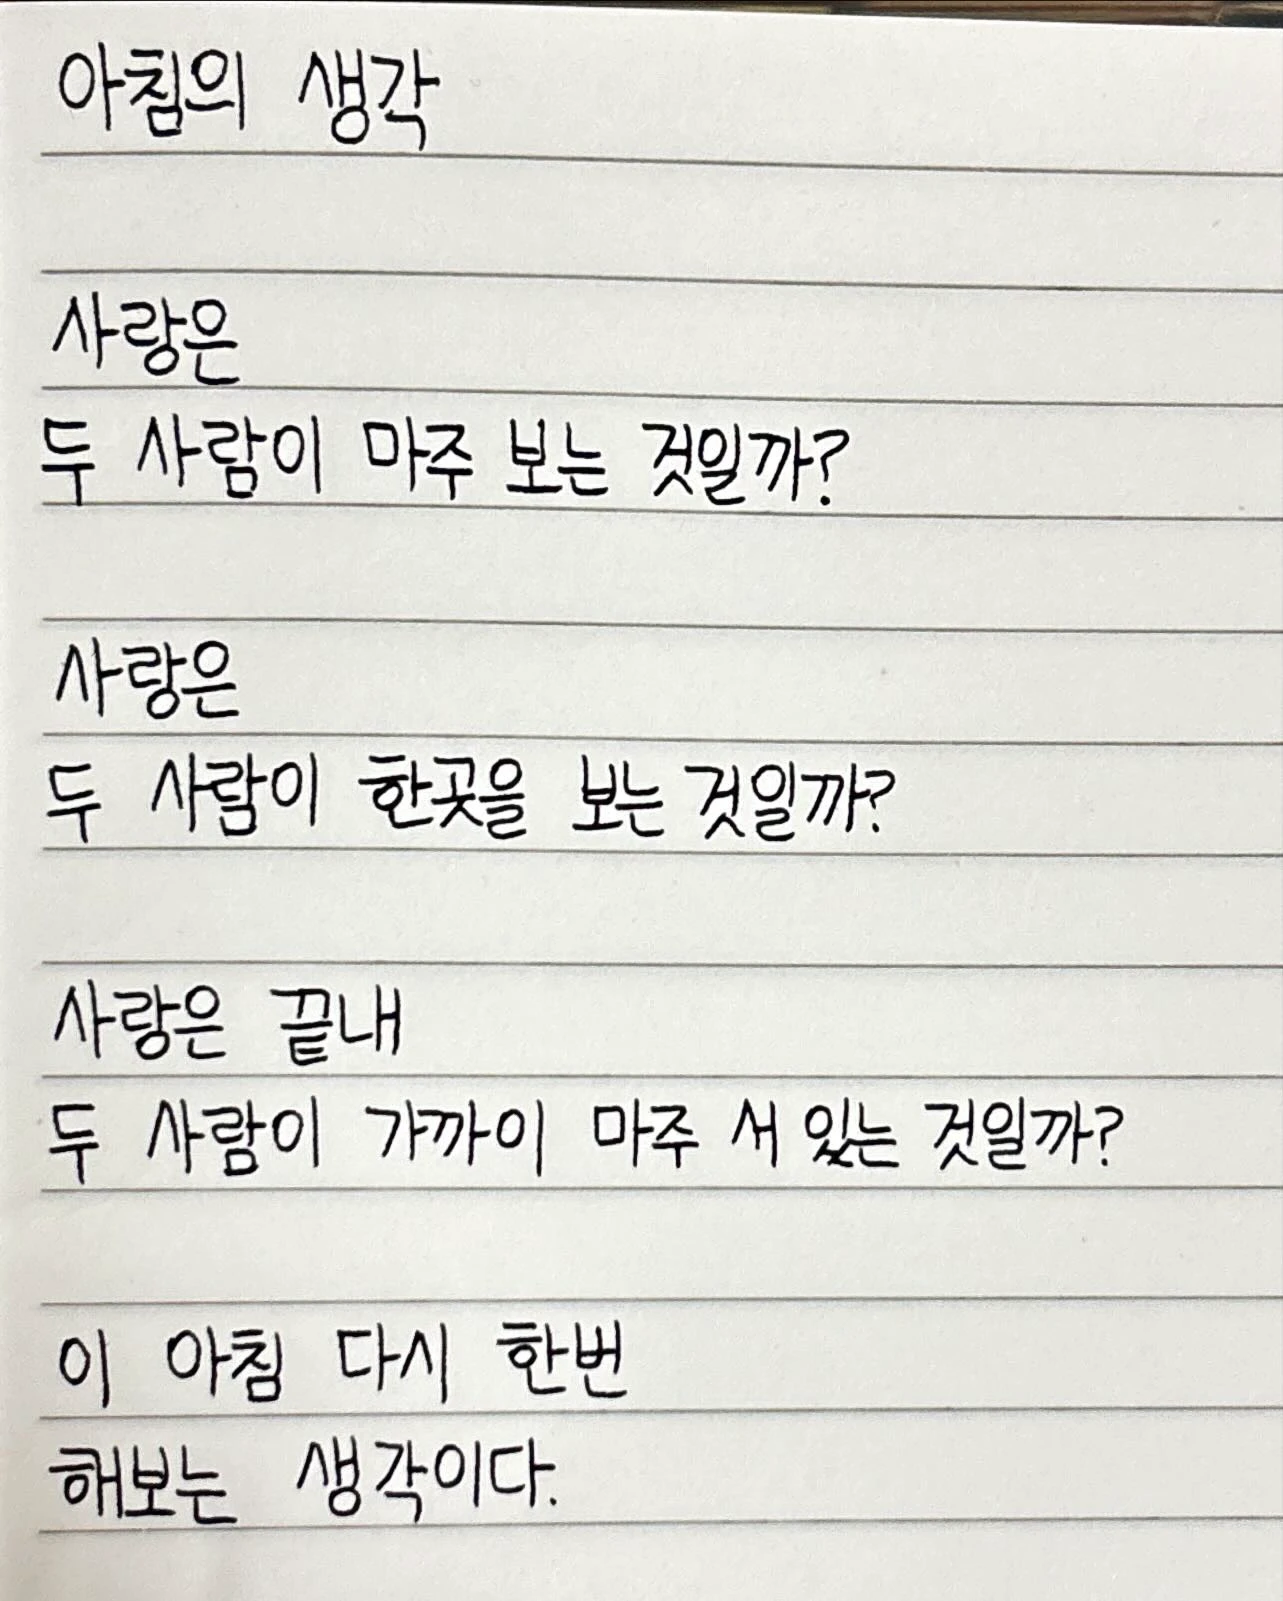 아침의 생각
사랑은
두 사람이 마주 보는 것일까?
사랑은
두 사람이 한곳을 보는 것일까?
사랑은 끝내
두 사람이 가까이 마주 서 있는 것일까?
이 아침 다시 한번
해보는 생각이다.